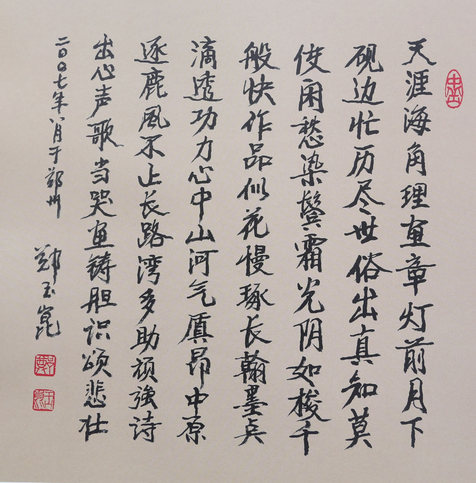 天涯海角理画章灯前月下
砚边忙历尽世俗出真知莫
使困愁染鬓霜光阴如梭千
般快作品似花慢琢长翰墨点
滴透功力心中山河气质昂中原
逐鹿風不止长路湾多助顽強诗
出心声歌当哭画铸胆识颂悲壮
二〇〇七年八月于郑州
郑玉崑